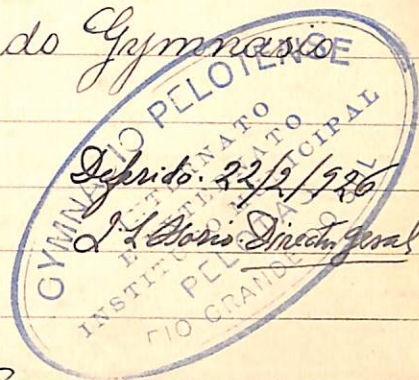 do Gymnasio
GYMNASIO PELOTENSE
INTERNATO
EXTERNATO
INSTITUTO MUNICIPAL
PELOTAS
RIO GRANDE DO SUL
Deferido. 22/2/926
J L Osorio Director geral